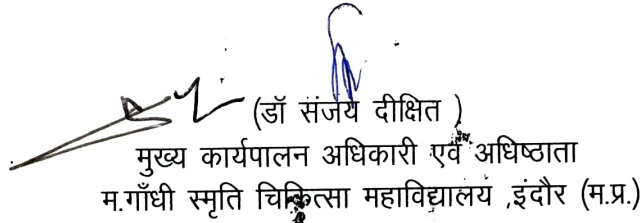 (डॉ संजय दीक्षित )
मुख्य कार्यपालन अधिकारी एवं अधिष्ठाता
म.गाँधी स्मृति चिकित्सा महाविद्यालय ,इंदौर (म.प्र.)